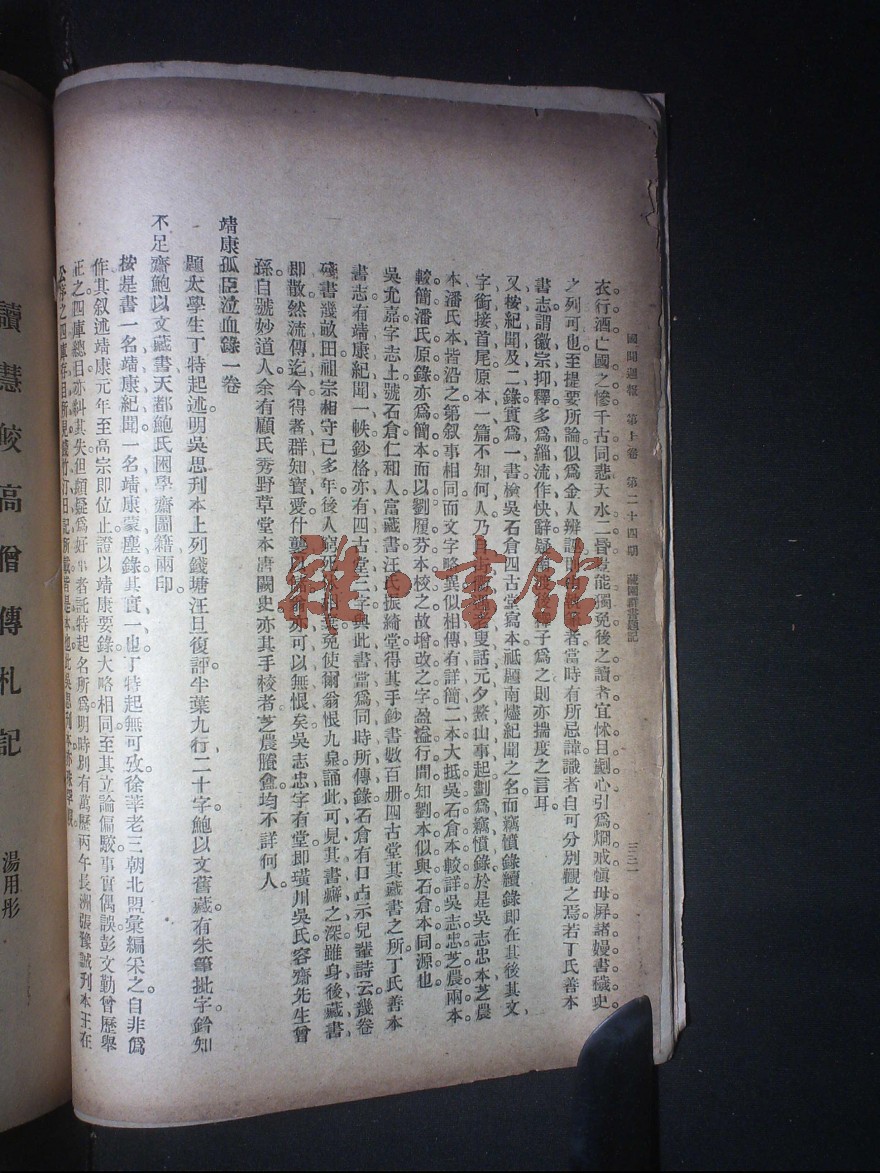 國聞週報 第十卷 第二十四期 藏園羣書題記
三三一
衣行酒亡國之慘千古同悲大水二晉豈能獨免後之讀者宜怵目劌心引爲烱戒愼毋屏諸嫚書穢史
之列可也至提要所論似爲金人辨謗 者當時有所忌諱識者自可分別觀之焉若丁氏善本
書志謂徽宗抑釋多爲緇流作快辭疑 釋子爲之則亦揣度之言耳
又按紀聞及二錄實爲一書檢吳石倉四古堂寫本祗題南燼紀聞之名而竊憤錄續錄即在其後其文
字銜接首尾原本一篇不知何人乃自 叟話元夕鰲山事起劃爲竊憤錄於是吳志忠本芝農
本潘氏本皆沿之第叙事相同而文字略異似相傳有詳簡二本大抵吳石倉本較詳吳志忠芝農兩本
較簡潘氏原錄亦爲簡本而以劉履芬本校之故增改之字盈溢行間知劉本似與石倉本同源也
吳允嘉字志上號石倉仁和人富藏書汪氏振綺堂得其手鈔書數百册四古堂其藏書之所丁氏善本
書志有靖康紀聞一帙鈔格亦有四古堂三字與此書當爲同時所傳錄石倉有日占示兒輩詩云幾卷
殘書幾畝田祖宗相守已多年後人窮死 棄免使爾翁恨九泉誦此可見其書癖之深雖身後藏書
即散然流傳迄今得者群知寶愛什襲 亦可以無恨矣吳志忠字有堂即璜川吳氏容齋先生曾
孫自號妙道人余有顧氏秀野草堂本唐闕史亦其手校者芝農賸盦均不詳何人
靖康孤臣泣血錄一卷
題太學生丁特起述明吳思刊本上列錢塘汪旦復評半葉九行二十字鮑以文舊藏有朱筆批字鈐知
不足齋鮑以文藏書天都鮑氏困學齋圖籍兩印
按是書一名靖康紀聞一名靖康蒙塵錄其實一也丁特起無可攷徐莘老三朝北盟彙編采之自非僞
作其叙述靖康元年至高宗即位止證以靖康要錄大略相同至其立論偏駁事實偶誤彭文勤曾歷舉
正之四庫總目亦糾其失但頗疑爲好事者託特起名所爲明時別有萬歷丙午長洲張豫誠刊本王在
公序之四庫存目所
讀慧皎高僧傳札記
湯用彤
雜·書館